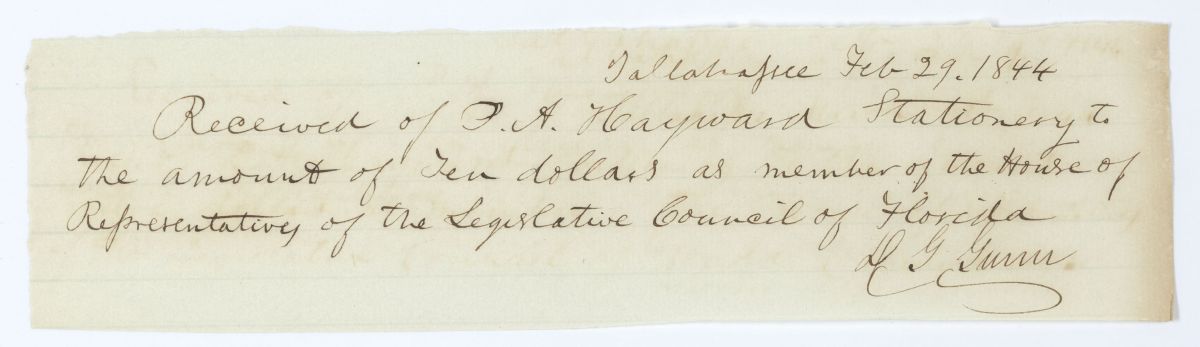 Tallahassee Feb 29. 1844
Received of P. A. Hayward Stationery to
the amount of Ten dollars as member of the House of
Representatives of the Legislative Council of Florida
D G Gunn